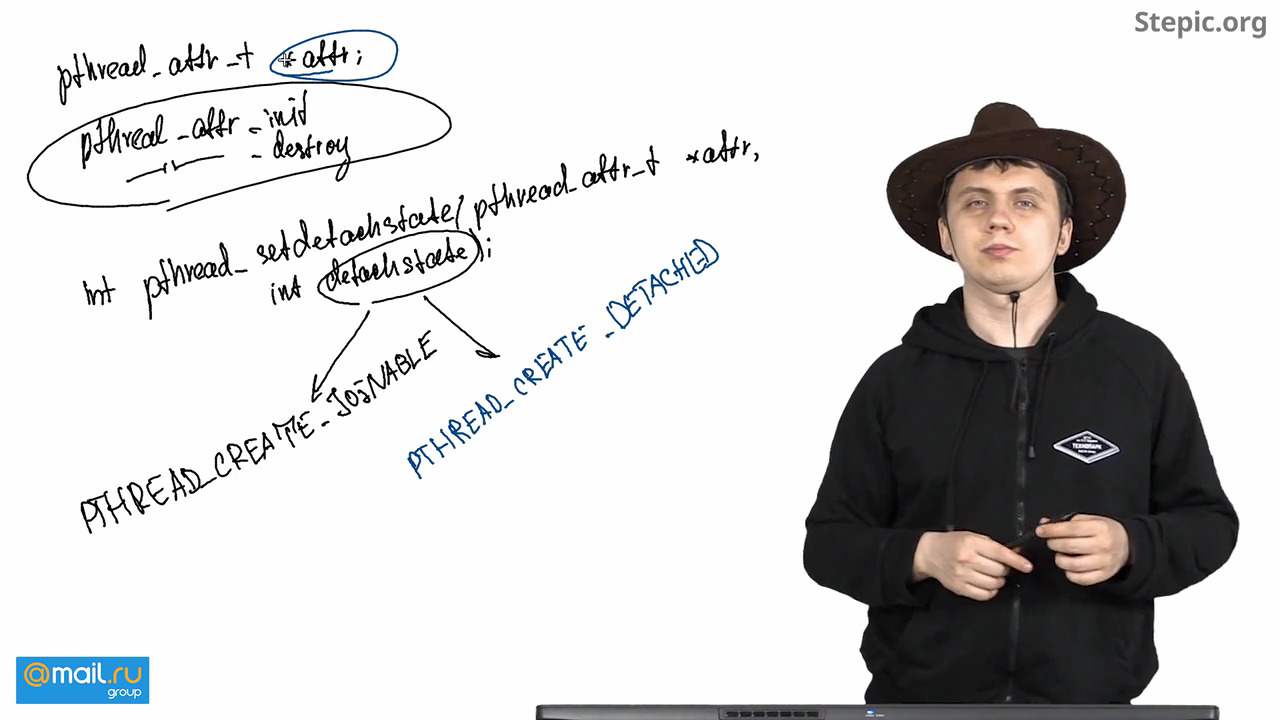 Stepic.org
pthread_attr_t *attr;
pthread_attr_init
_destroy
int pthread_setdetachstate(pthread_attr_t *attr,
int detachstate);
PTHREAD_CREATE_JOiNABLE
PTHREAD_CREATE_DETACHED
ТЕХНОПАРК
@mail.ru
group